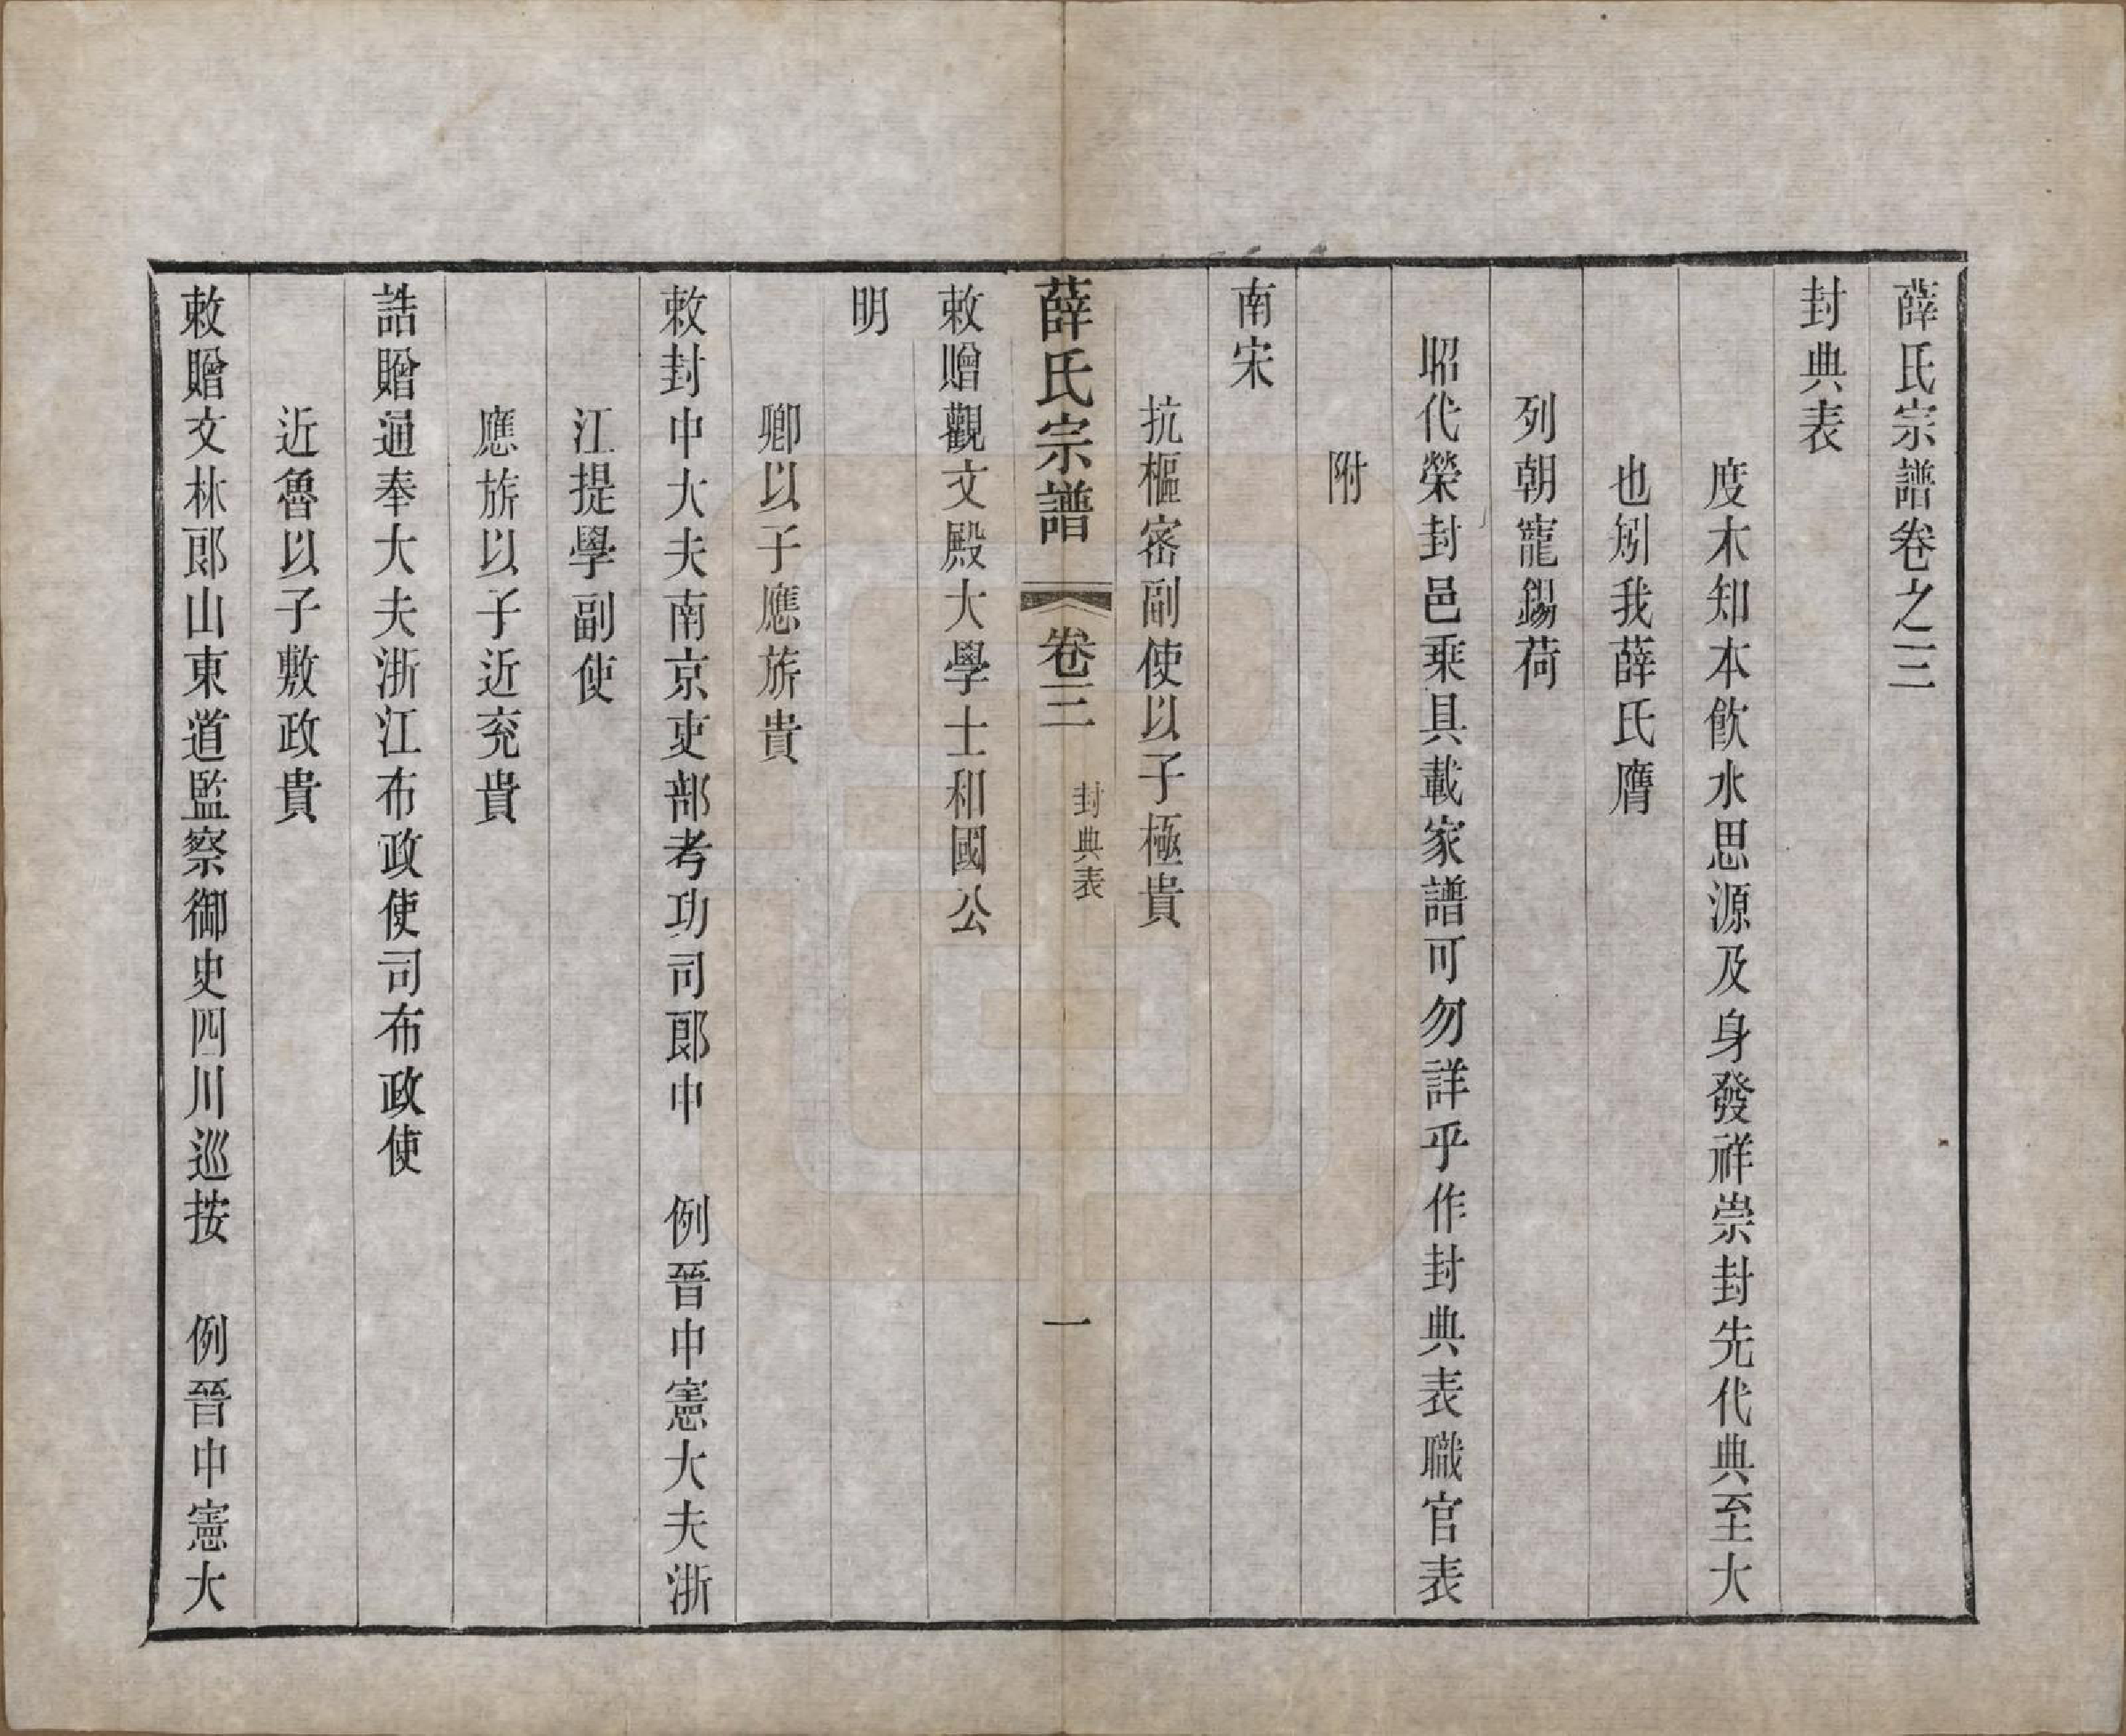 薛氏宗譜卷之三
封典表
度木知本飮水思源及身發祥崇封先代典至大
也矧我薛氏膺
列朝寵錫荷
昭代榮封邑乗具載家譜可勿詳乎作封典表職官表
附
南宋
抗樞宻副使以子極貴
薛氏宗譜 卷三 封典表 一
敕贈觀文殿大學士和國公
明
卿以子應旂貴
敕封中大夫南京吏部考功司郎中 例晉中憲大夫浙
江提學副使
應旂以子近兖貴
誥贈通奉大夫浙江布政使司布政使
近魯以子敷政貴
敕贈文林郎山東道監察御史四川巡按 例晉中憲大